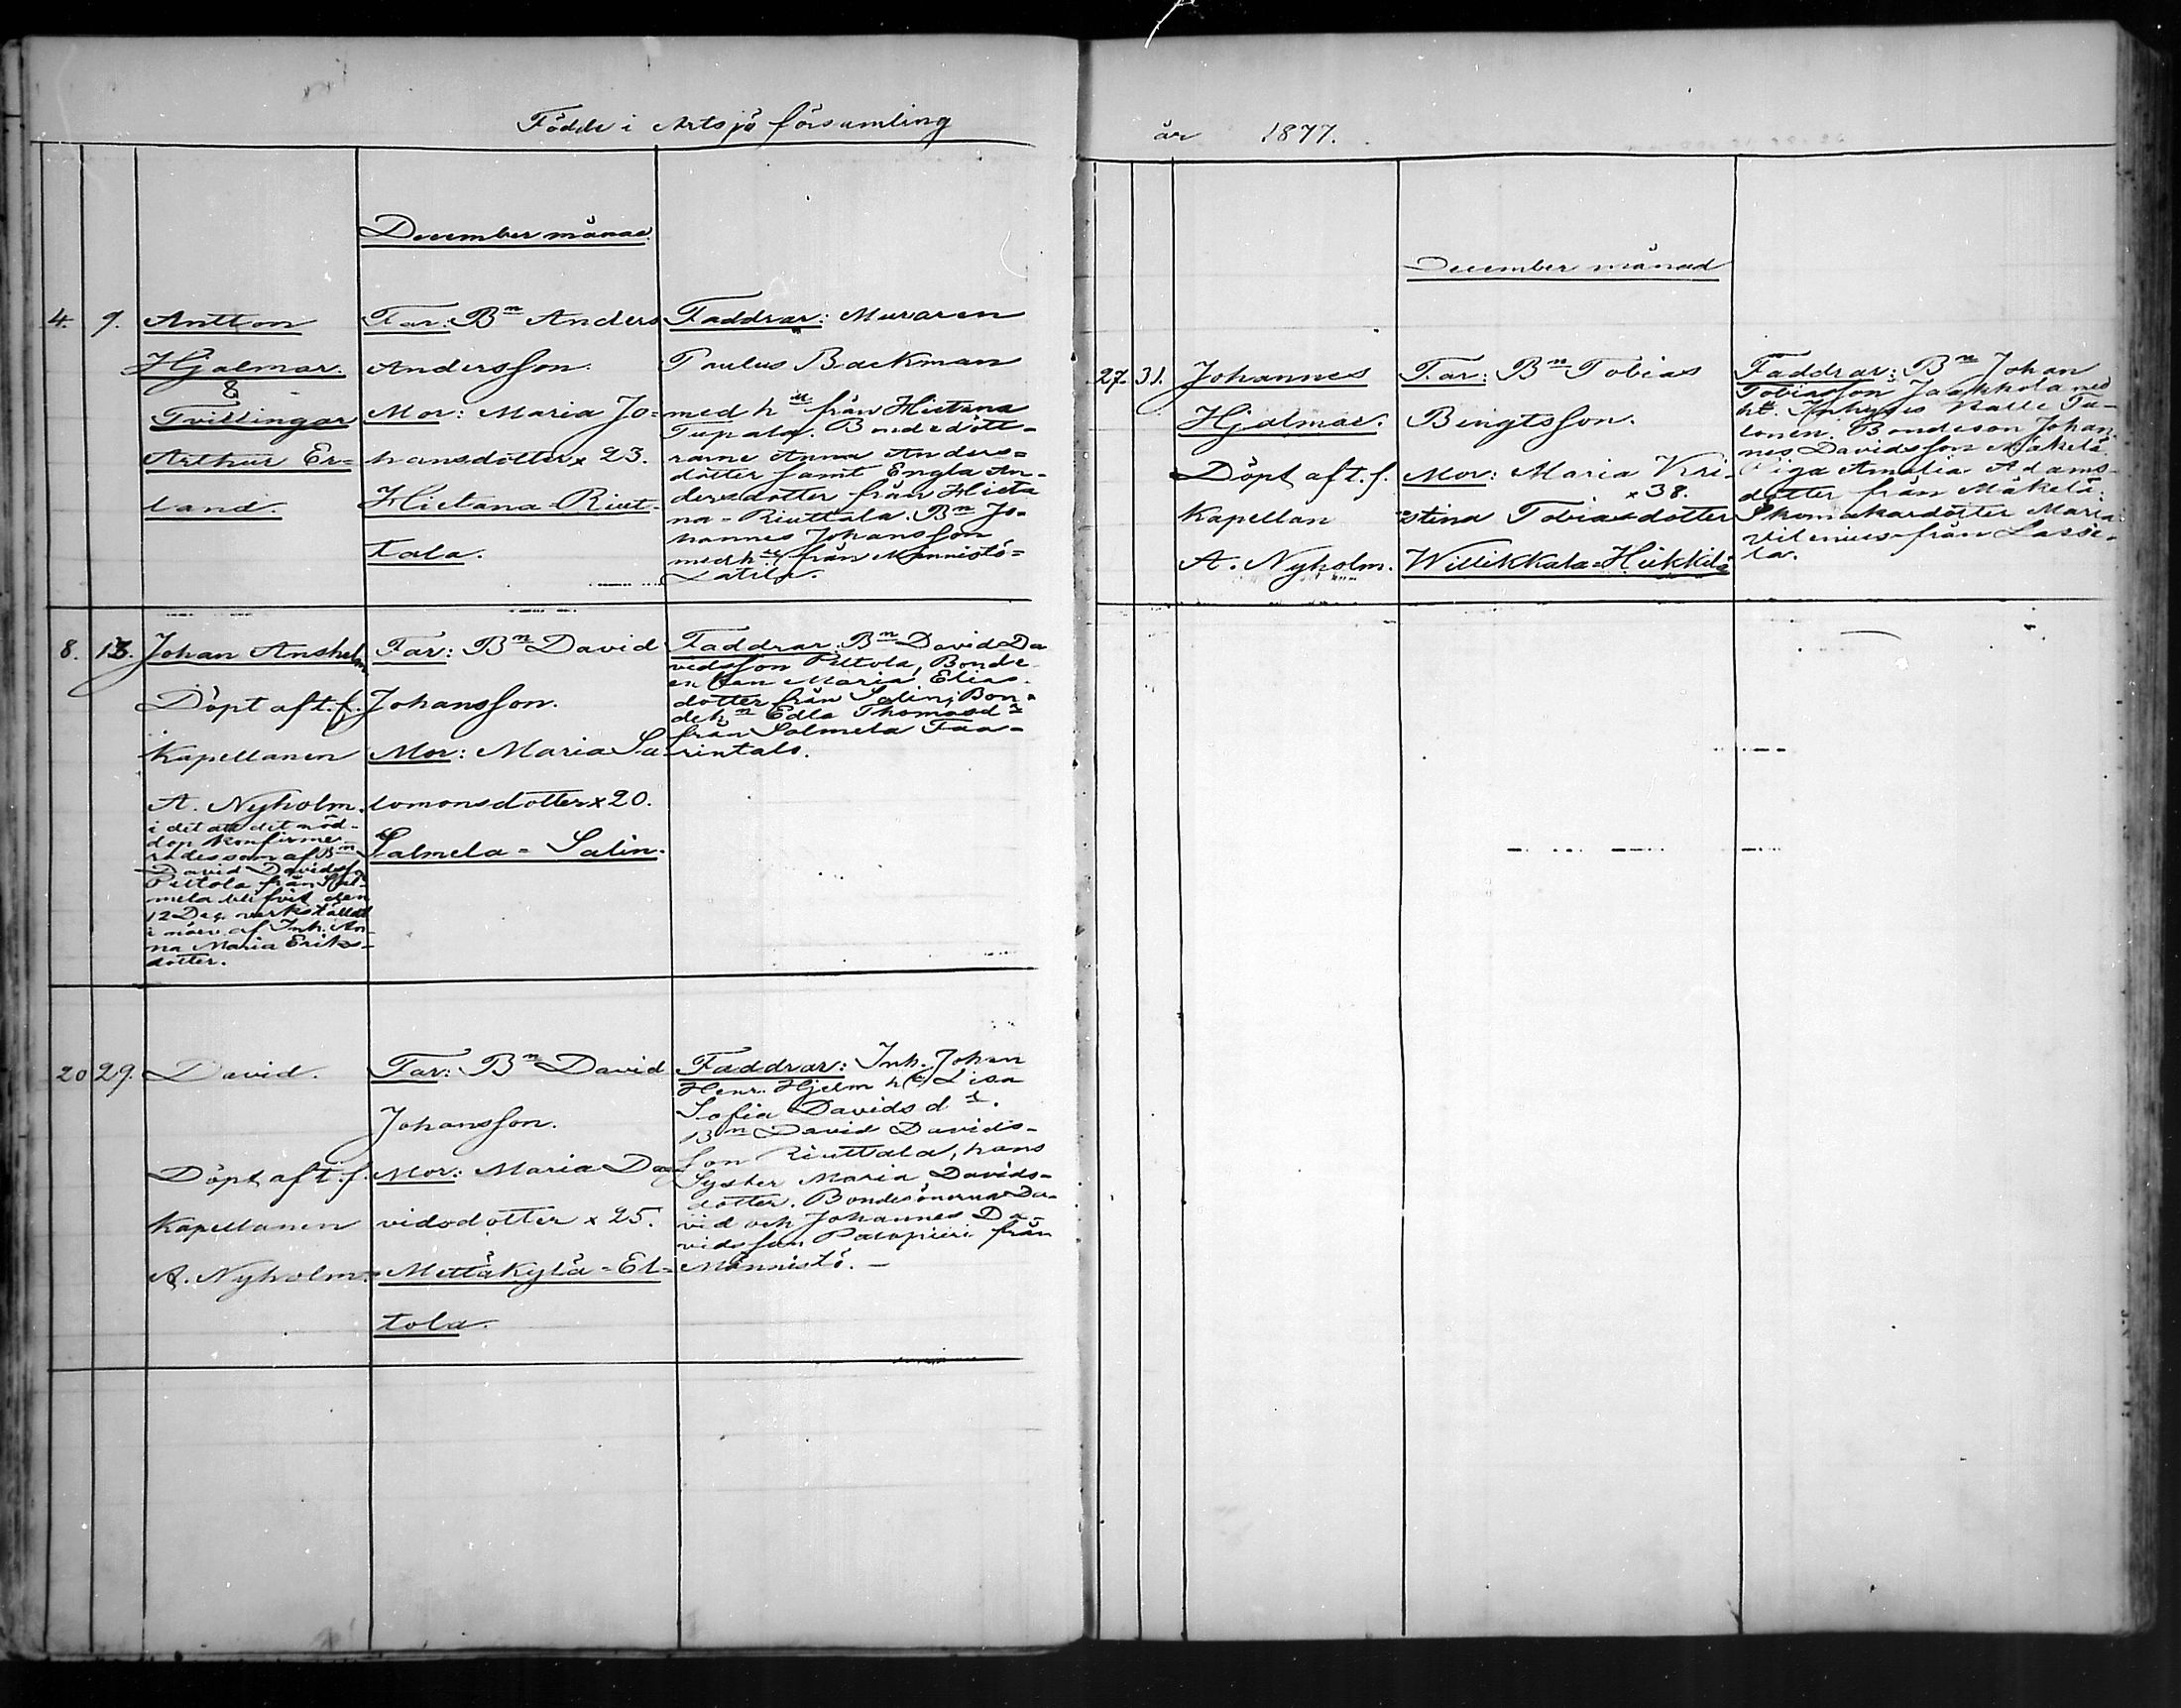 Födde i Artsjö församling
December månad.
4. 9. Antton
Hjalmar.
&
Tvillingar
Arthur Er-
land.
Far: Bn Anders
Andersson.
Mor: Maria Jo-
hansdotter x 23.
Hietana-Riut-
tala.
Faddrar: Muraren
Paulus Backman
med hu från Hietana
Tupala. Bondedött-
rarne Anna Anders-
dotter samt Engla An-
dersdotter från Hieta
na-Riuttala. Bn Jo-
hannes Johansson
med h från Männistö-
Latila.
8. 13. Johan Anshelm
Döpt af t.f.
Kapellanen
A. Nyholm.
i det att det nöd-
dop konfirme-
rades som af Bn
David Davidss.
Peltola från Sal-
mela blifvit den
12 Dec. verkställdt
i närv. af Inh. An-
na Maria Eriks-
dotter.
Far: Bn David
Johansson.
Mor: Maria Sa-
lomonsdotter x 20.
Salmela-Salin.
Faddrar: Bn David Da
vidsson Peltola, Bonde
enkan Maria Elias-
dotter från Salin, Bon-
deh Edla Thomasdr
från Salmela Faa-
rintalo.
20 29. David.
Döpt af t.f.
Kapellanen
A. Nyholm.
Far: Bn David
Johansson.
Mor: Maria Da-
vidsdotter x 25.
Mettäkylä-El-
tola.
Faddrar: Inh. Johan
Henr. Hjelm h Lisa
Sofia Davids dr.
Bn David Davids-
son Riuttala, hans
Syster Maria Davids-
dotter. Bondesönerna Da-
vid och Johannes Da-
vidsson Palopiiri från
Männistö. -
år 1877.
December månad
27. 31. Johannes
Hjalmar.
Döpt af t.f.
Kapellan
A. Nyholm.
Far: Bn Tobias
Bengtsson.
Mor: Maria Kri-
x 38.
stina Tobiasdotter
Willikkala-Heikkilä
Faddrar: Bn Johan
Tobiasson Jaakkola med
hu. Inhyses Kalle Tu-
lonen. Bondeson Johan
nes Davidsson Mäkelä.
Piga Amalia Adams-
dotter från Mäkelä.
Skomakardotter Maria
Vilenius från Lassi-
la.